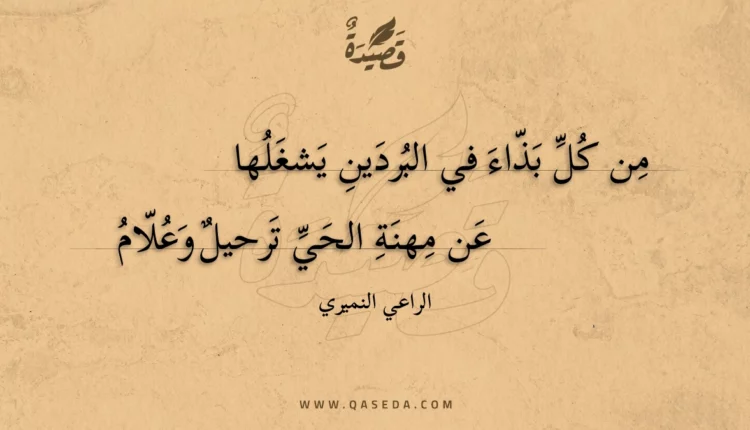 قَصِيدَةٌ
مِن كُلِّ بَذّاءَ في البُردَينِ يَشغَلُها
عَن مِهنَةِ الحَيِّ تَرحيلٌ وَعُلّامُ
الراعي النميري
WWW.QASEDA.COM